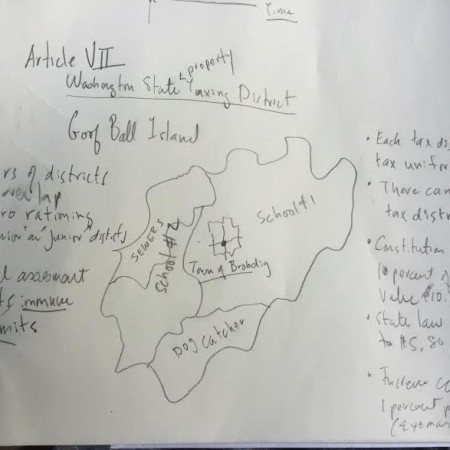 Time
Article VII
property
Washington State Taxing District
Goof Ball Island
rs of districts
overlap
ro rationing
nior "an" junior" districts
l assessment
ts immune
mits
Sewers
School #2
School #1
Town of Brobdig
Dog Catcher
• Each tax dis
tax unifor
• There can
tax distr
• Constitution
10 percent of
Value $10.
• State law
to $5.
• Increase
1 percent p